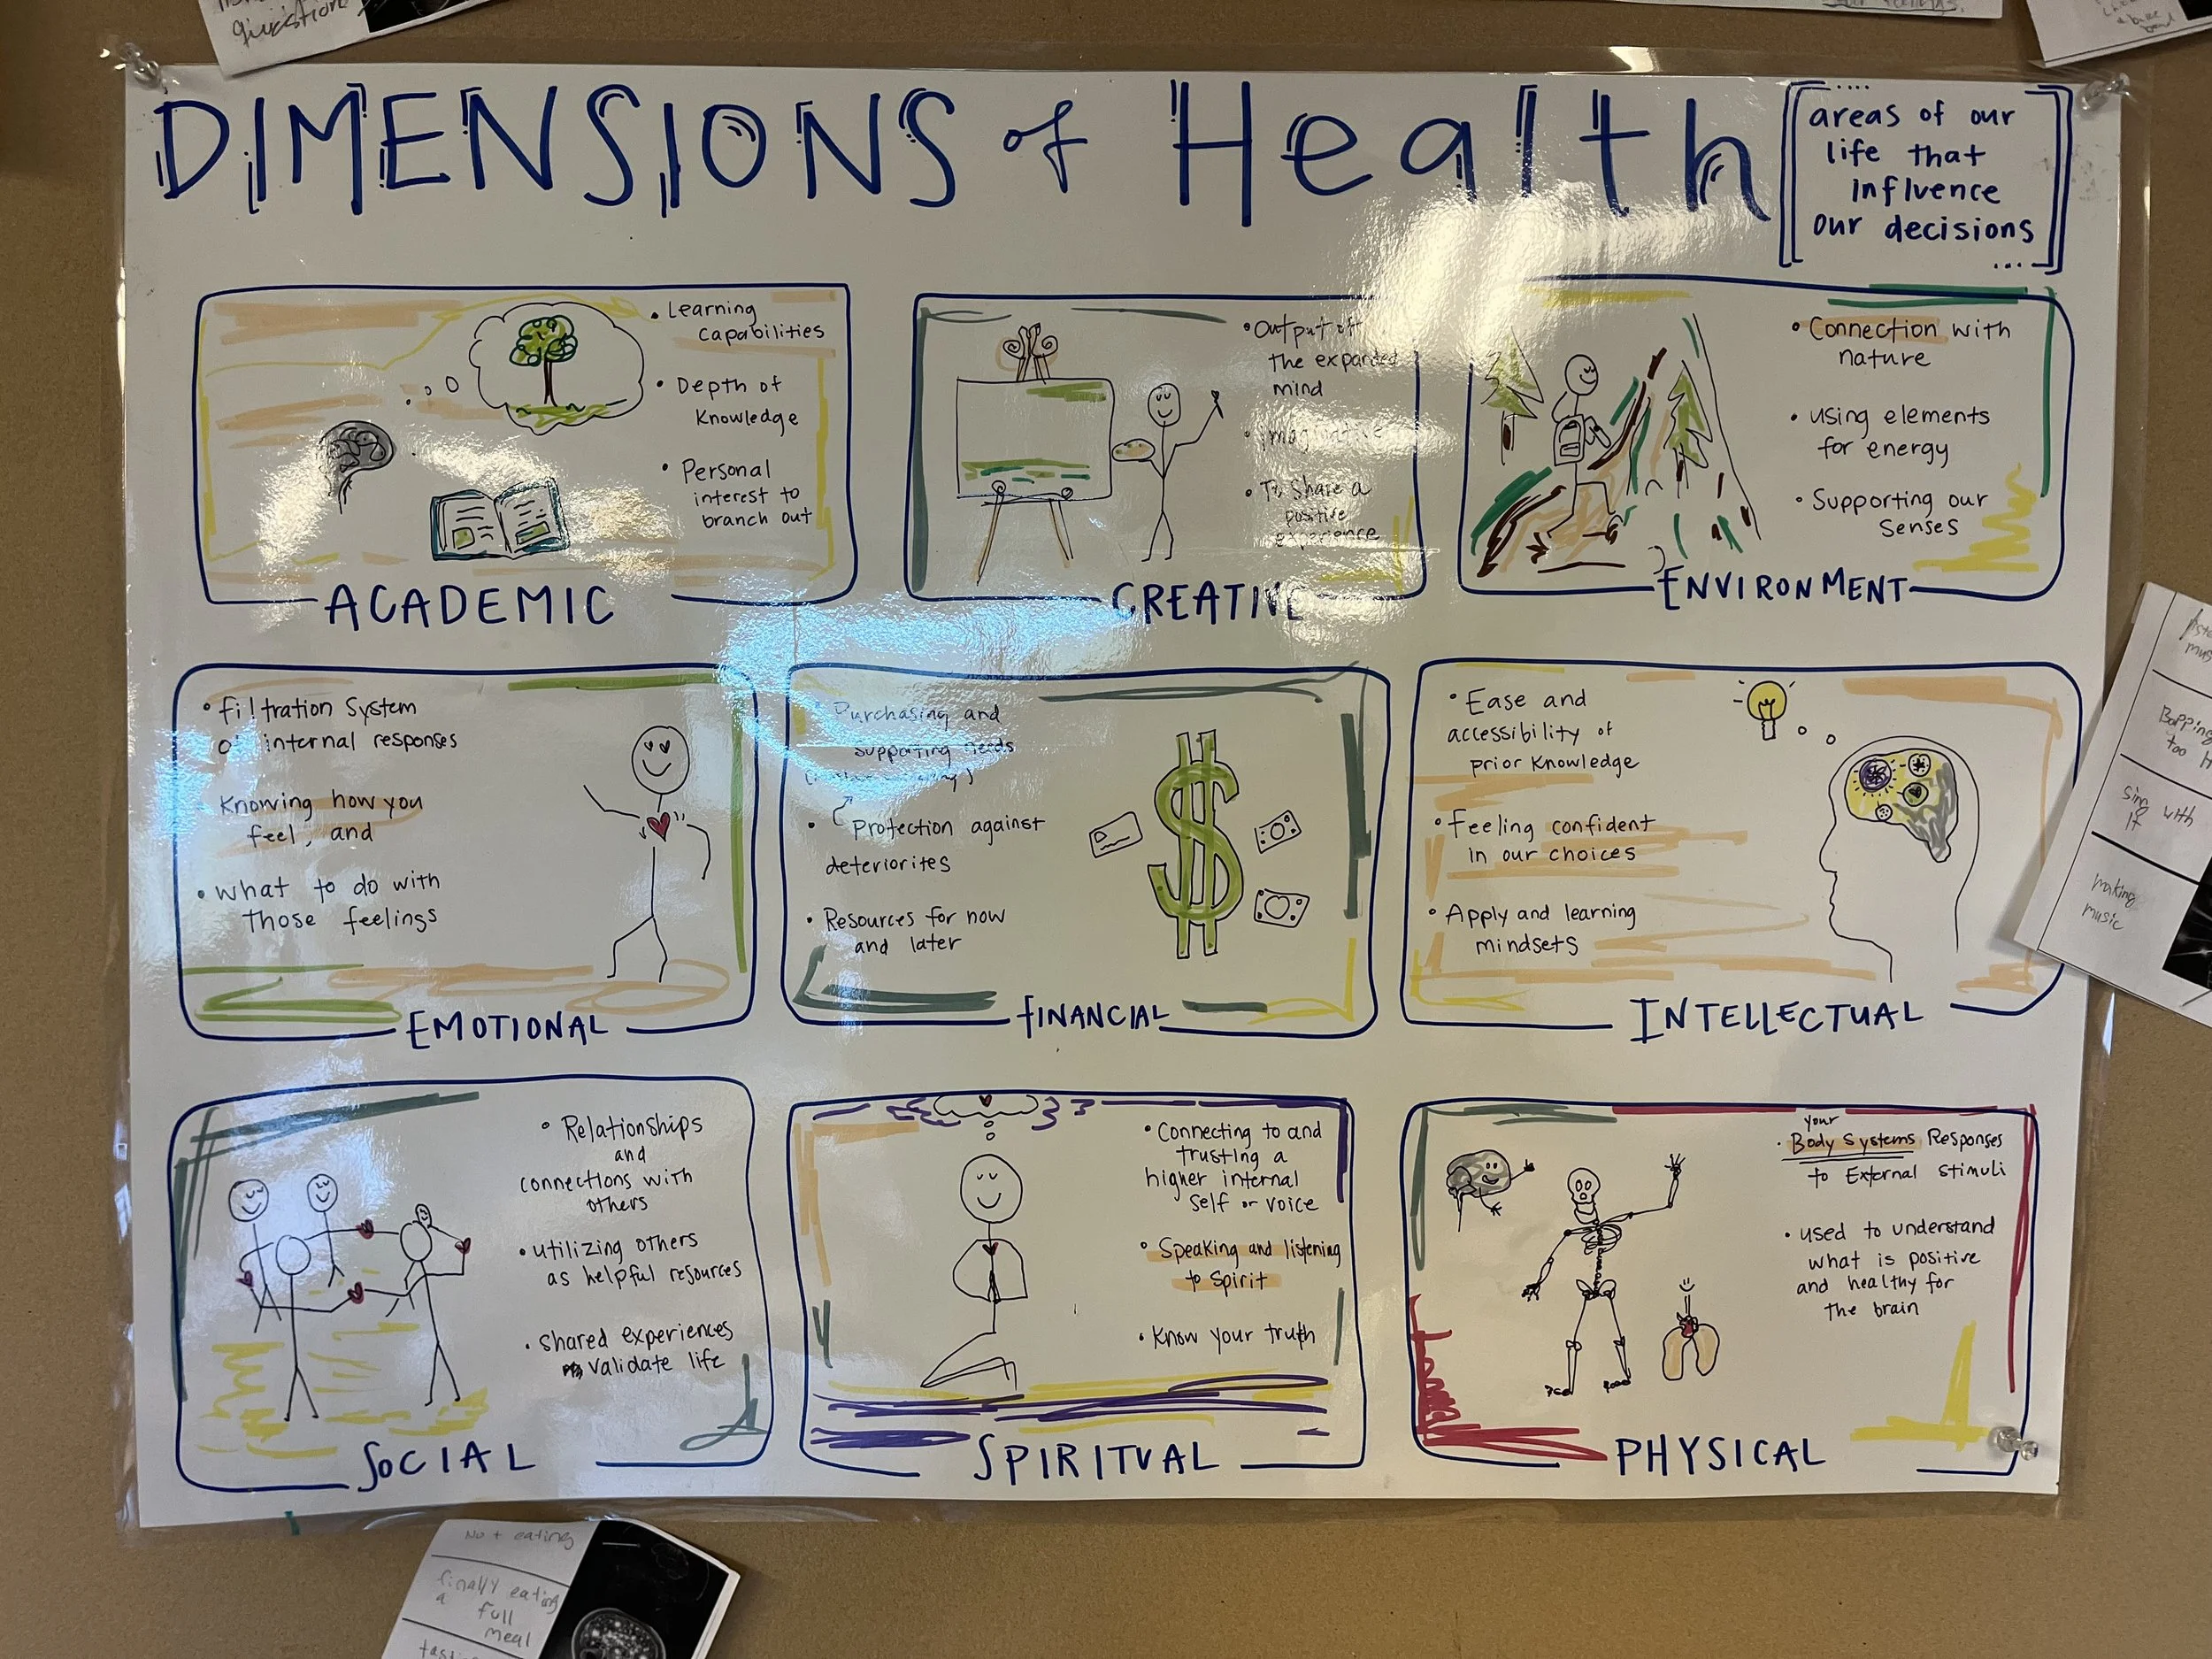 question
DIMENSIONS of Health
areas of our
life that
influence
our decisions
• Learning
capabilities
• Depth of
Knowledge
• Personal
interest to
branch out
ACADEMIC
• Output of
the expanded
mind
• Imaginative
• To Share a
positive
experience
CREATIVE
• Connection with
nature
• using elements
for energy
• Supporting our
Senses
ENVIRONMENT
• filtration System
of internal responses
Knowing how you
feel, and
• what to do with
those feelings
EMOTIONAL
Purchasing and
supporting needs
• Protection against
deteriorites
• Resources for now
and later
FINANCIAL
• Ease and
accessibility of
prior Knowledge
• feeling confident
in our choices
• Apply and learning
mindsets
INTELLECTUAL
• Relationships
and
connections with
others
• utilizing others
as helpful resources
• shared experiences
validate life
SOCIAL
• Connecting to and
trusting a
higher internal
self or voice
• Speaking and listening
to Spirit
• Know your truth
SPIRITUAL
your
• Body Systems Responses
to External stimuli
• used to understand
what is positive
and healthy for
the brain
PHYSICAL
Bopping
too
sing with
it
making
music
Not eating
finally eating
a full
meal